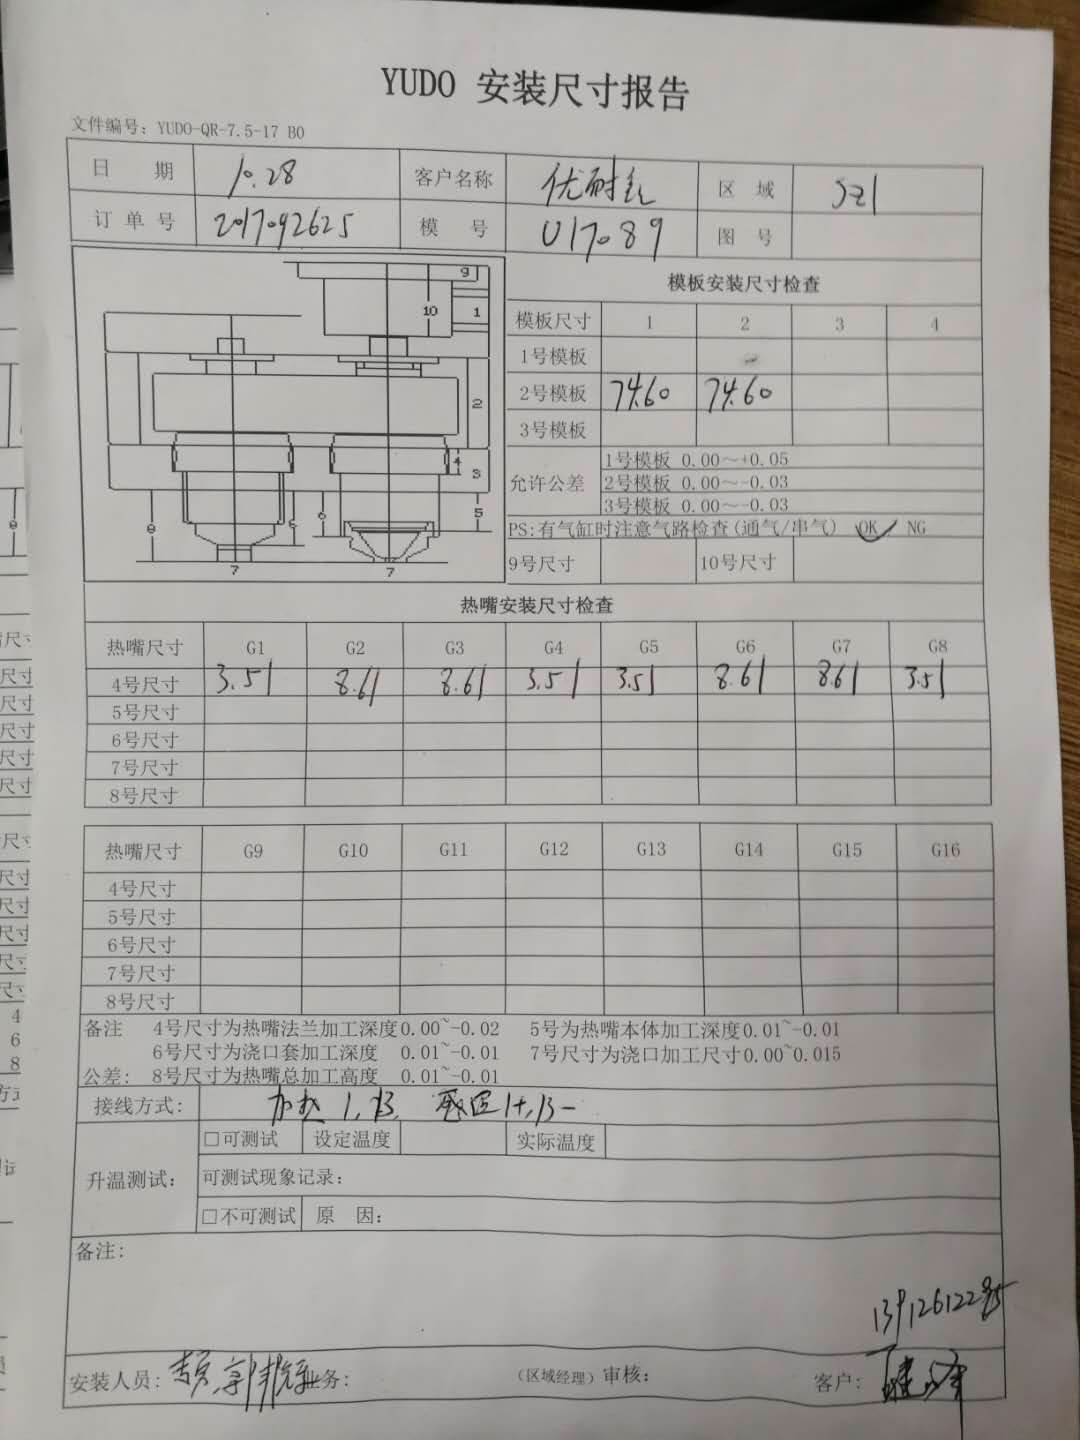 YUDO 安装尺寸报告
文件编号: YUDO-QR-7.5-17 B0
日 期 10.28 客户名称 优耐 区 域 SZ1
订 单 号 2017092625 模 号 U17089 图 号
模板安装尺寸检查
模板尺寸 1 2 3 4
1号模板
2号模板 74.60 74.60
3号模板
允许公差 1号模板 0.00~+0.05
2号模板 0.00~-0.03
3号模板 0.00~-0.03
PS:有气缸时注意气路检查(通气/串气) OK NG
9号尺寸 10号尺寸
9
10 1
2
4 3
8 6 6 5
7 7
热嘴安装尺寸检查
热嘴尺寸 G1 G2 G3 G4 G5 G6 G7 G8
4号尺寸 3.51 8.61 8.61 3.51 3.51 8.61 8.61 3.51
5号尺寸
6号尺寸
7号尺寸
8号尺寸
热嘴尺寸 G9 G10 G11 G12 G13 G14 G15 G16
4号尺寸
5号尺寸
6号尺寸
7号尺寸
8号尺寸
备注 4号尺寸为热嘴法兰加工深度0.00~-0.02 5号为热嘴本体加工深度0.01~-0.01
6号尺寸为浇口套加工深度 0.01~-0.01 7号尺寸为浇口加工尺寸0.00~0.015
公差: 8号尺寸为热嘴总加工高度 0.01~-0.01
接线方式: 加热 1, 13, 感温 1+, 13-
升温测试: □可测试 设定温度 实际温度
可测试现象记录:
□不可测试 原 因:
备注:
13912612285
安装人员: 业务: (区域经理)审核: 客户: